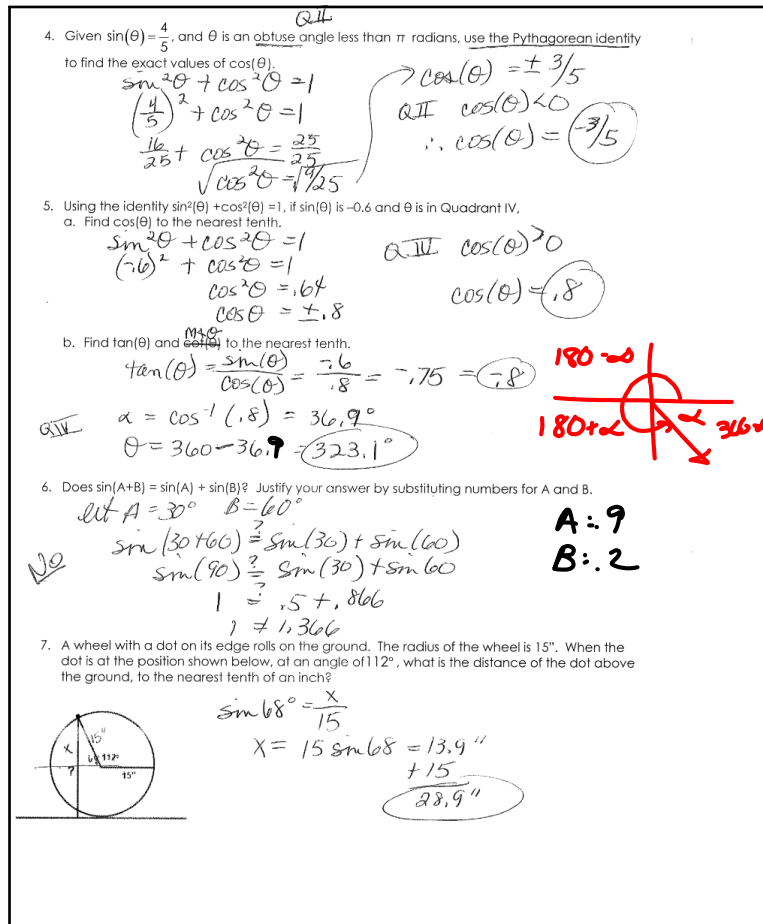 QII
4. Given sin(θ) = 4/5, and θ is an obtuse angle less than π radians, use the Pythagorean identity
to find the exact values of cos(θ).
sin²θ + cos²θ = 1
(4/5)² + cos²θ = 1
16/25 + cos²θ = 25/25
√cos²θ = √9/25
cos(θ) = ± 3/5
QII cos(θ) < 0
∴ cos(θ) = -3/5
5. Using the identity sin²(θ) +cos²(θ) =1, if sin(θ) is –0.6 and θ is in Quadrant IV,
a. Find cos(θ) to the nearest tenth.
sin²θ + cos²θ = 1
(-.6)² + cos²θ = 1
cos²θ = .64
cosθ = ±.8
QIV cos(θ) > 0
cos(θ) = .8
m∠θ
b. Find tan(θ) and cot(θ) to the nearest tenth.
tan(θ) = sin(θ)/cos(θ) = -.6/.8 = -.75 = -.8
QIV
α = cos⁻¹(.8) = 36.9°
θ = 360 - 36.9 = 323.1°
180-α
180+α
α
360-α
6. Does sin(A+B) = sin(A) + sin(B)? Justify your answer by substituting numbers for A and B.
let A = 30° B = 60°
sin(30+60) ≟ sin(30) + sin(60)
No
sin(90) ≟ sin(30) + sin 60
1 ≟ .5 + .866
1 ≠ 1.366
A:.9
B:.2
7. A wheel with a dot on its edge rolls on the ground. The radius of the wheel is 15". When the
dot is at the position shown below, at an angle of112°, what is the distance of the dot above
the ground, to the nearest tenth of an inch?
sin 68° = x/15
x = 15 sin 68 = 13.9"
+15
28.9"
15"
x
68
112°
?
15"